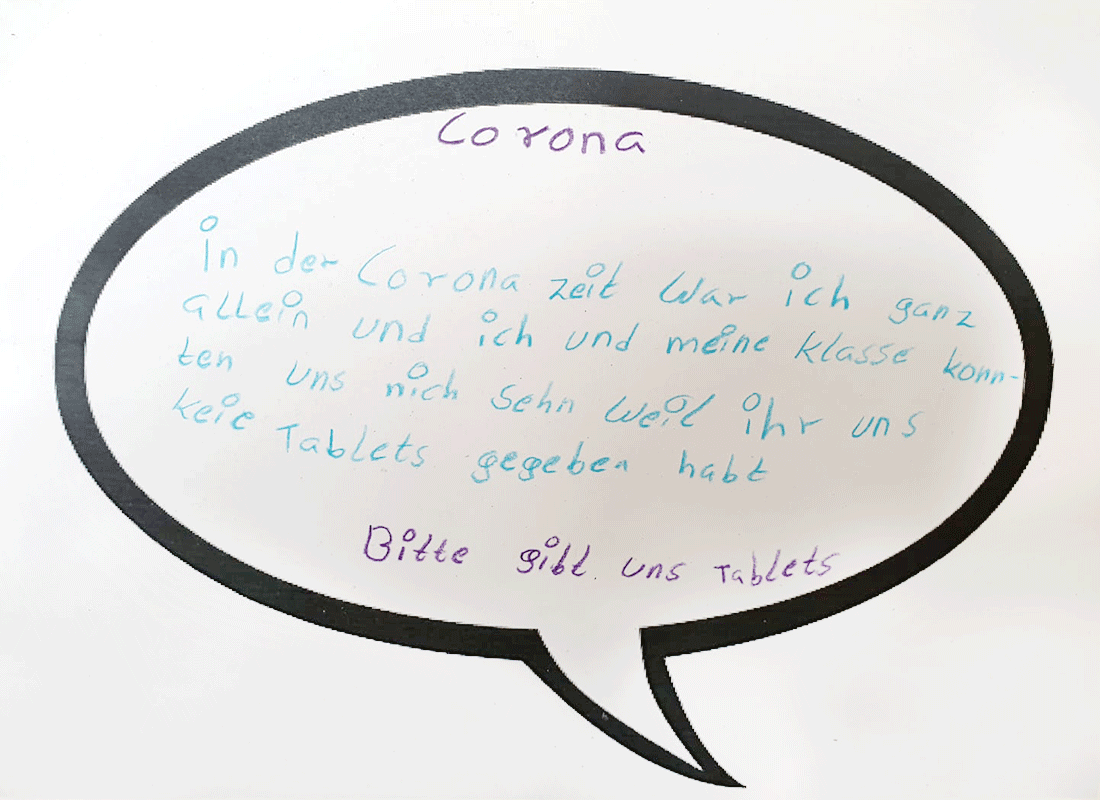 Corona
in der Corona zeit War ich ganz
allein und ich und meine klasse konn-
ten uns nich sehn weil ihr uns
keie Tablets gegeben habt
Bitte gibt uns Tablets